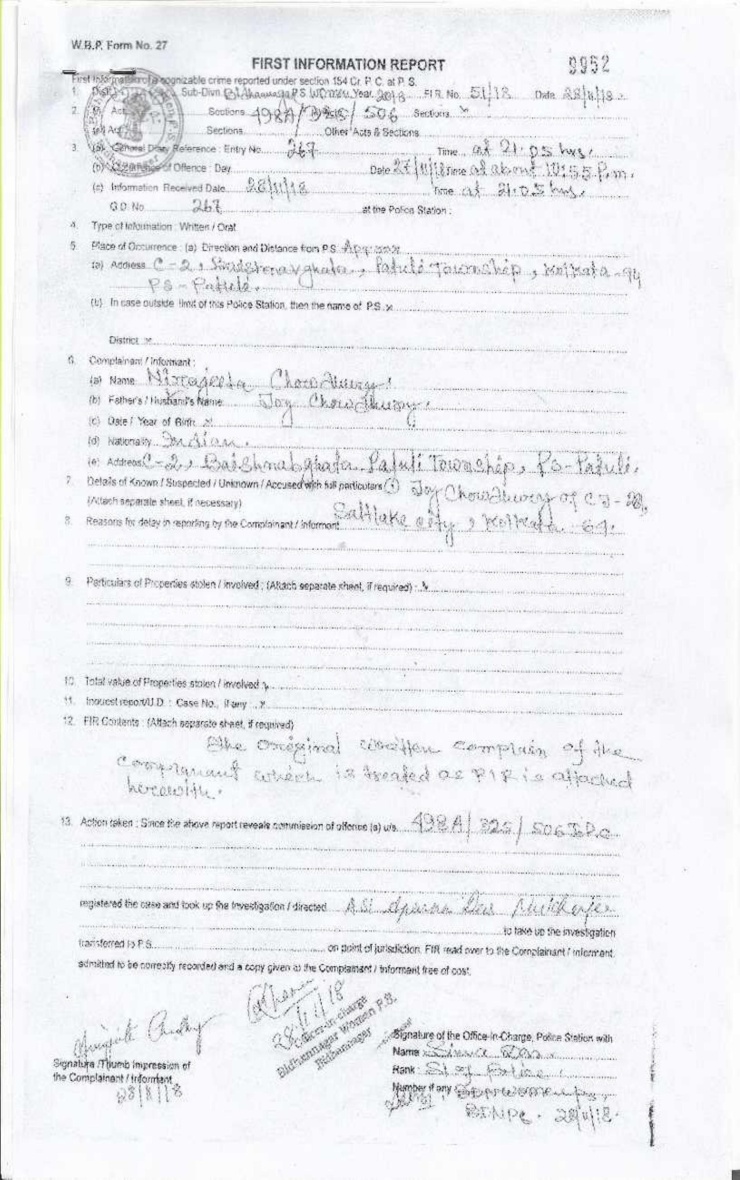 W.B.P. Form No. 27
FIRST INFORMATION REPORT
9952
First Information of a cognizable crime reported under section 154 Cr. P. C. at P. S.
1. Sub-Divn. Bidhannagar PS Women Year. 2018 F.I.R. No. 51/18 Date 28/11/18.
2. Act Sections 498A/325/506 Sections x
Act Sections Other Acts & Sections
3. (a) General Diary Reference : Entry No. 267 Time at 21.05 hrs.
(b) of Offence : Day Date 27/11/18 Time at about 10:55 P.m.
(c) Information Received Date 28/11/18 Time at 21.05 hrs.
G.D. No. 267 at the Police Station :
4. Type of Information : Written / Oral
5. Place of Occurrence : (a) Direction and Distance from P.S. Approx
(a) Address C-2, Patuli Township, Kolkata-94
PS-Patuli.
(b) In case outside limit of this Police Station, then the name of P.S. x
District x
6. Complainant / Informant :
(a) Name Chowdhury.
(b) Father's / Husband's Name Joy Chowdhury.
(c) Date / Year of Birth x
(d) Nationality Indian.
(e) Address C-2, Baishnabghata Patuli Township, Ps-Patuli.
7. Details of Known / Suspected / Unknown / Accused with full particulars (1) Joy Chowdhury of CJ-28,
(Attach separate sheet, if necessary)
Saltlake city, Kolkata 64.
8. Reasons for delay in reporting by the Complainant / Informant
9. Particulars of Properties stolen / involved : (Attach separate sheet, if required) : x
10. Total value of Properties stolen / involved x
11. Inquest report/U.D. : Case No., if any x
12. FIR Contents : (Attach separate sheet, if required)
The original written complain of the
complainant which is treated as FIR is attached
herewith.
13. Action taken : Since the above report reveals commission of offence (s) u/s. 498A/325/506 I.P.C.
registered the case and took up the investigation / directed ASI
to take up the investigation
transferred to P.S. on point of jurisdiction. FIR read over to the Complainant / Informant,
admitted to be correctly recorded and a copy given to the Complainant / Informant free of cost.
28/11/18
Officer-in-charge
Bidhannagar Women P.S.
Bidhannagar
Signature / Thumb Impression of
the Complainant / Informant
28/11/18
Signature of the Office-in-Charge, Police Station with
Name Das.
Rank : SI of Police
Number if any BDN Women PS,
28/11/18.